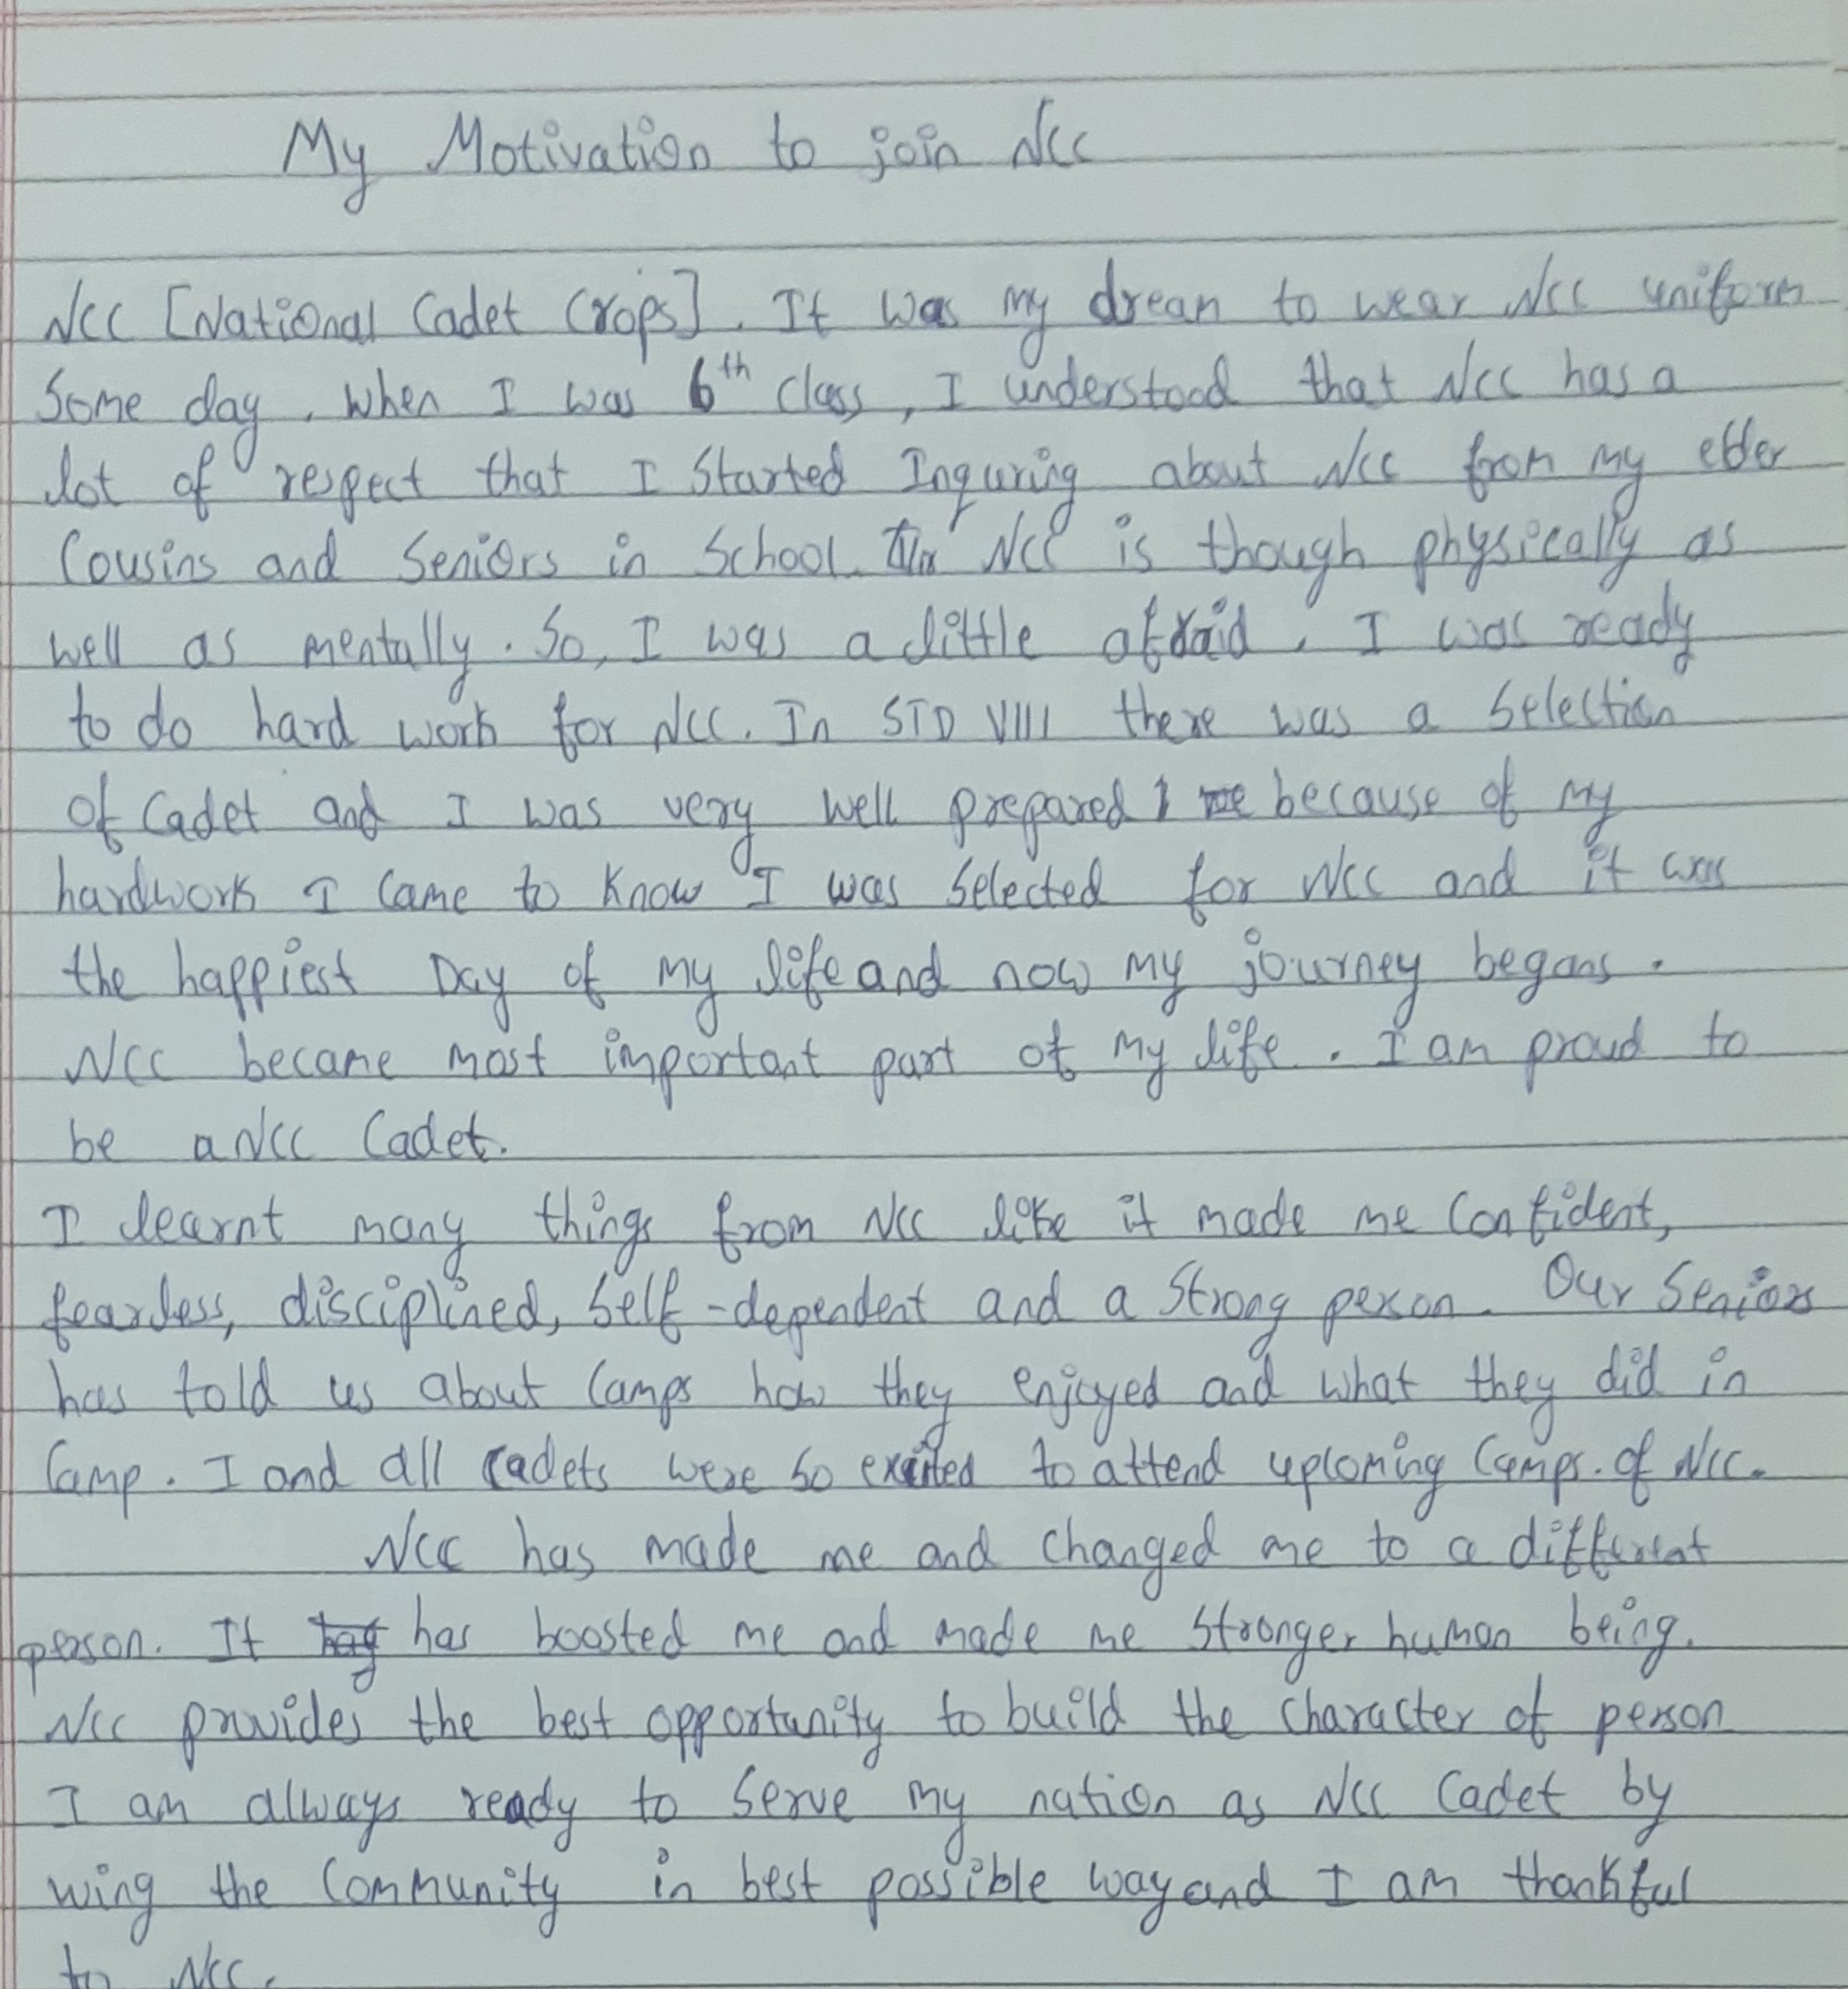 My Motivation to join NCC
NCC [National Cadet Crops]. It was my drean to wear NCC uniform
Some day. When I was 6th class, I understood that NCC has a
lot of respect that I Started Inquring about NCC from my elder
Cousins and Seniors in School. NCC is though physically as
well as mentally. So, I was a little afraid. I was ready
to do hard work for NCC. In STD VIII there was a Selection
of Cadet and I was very well prepared because of my
hardwork I Came to Know I was Selected for NCC and it was
the happiest Day of my life and now my journey begans.
NCC became most important part of my life. I am proud to
be a NCC Cadet.
I learnt many things from NCC like it made me Confident,
fearless, disciplined, Self-dependent and a Strong person. Our Seniors
has told us about Camps how they enjoyed and what they did in
Camp. I and all cadets were so excited to attend upcoming Camps. of NCC.
NCC has made me and changed me to a different
person. It has boosted me and made me Stronger human being.
NCC provides the best opportunity to build the character of person
I am always ready to Serve my nation as NCC Cadet by
wing the Community in best possible way and I am thankful
to NCC.